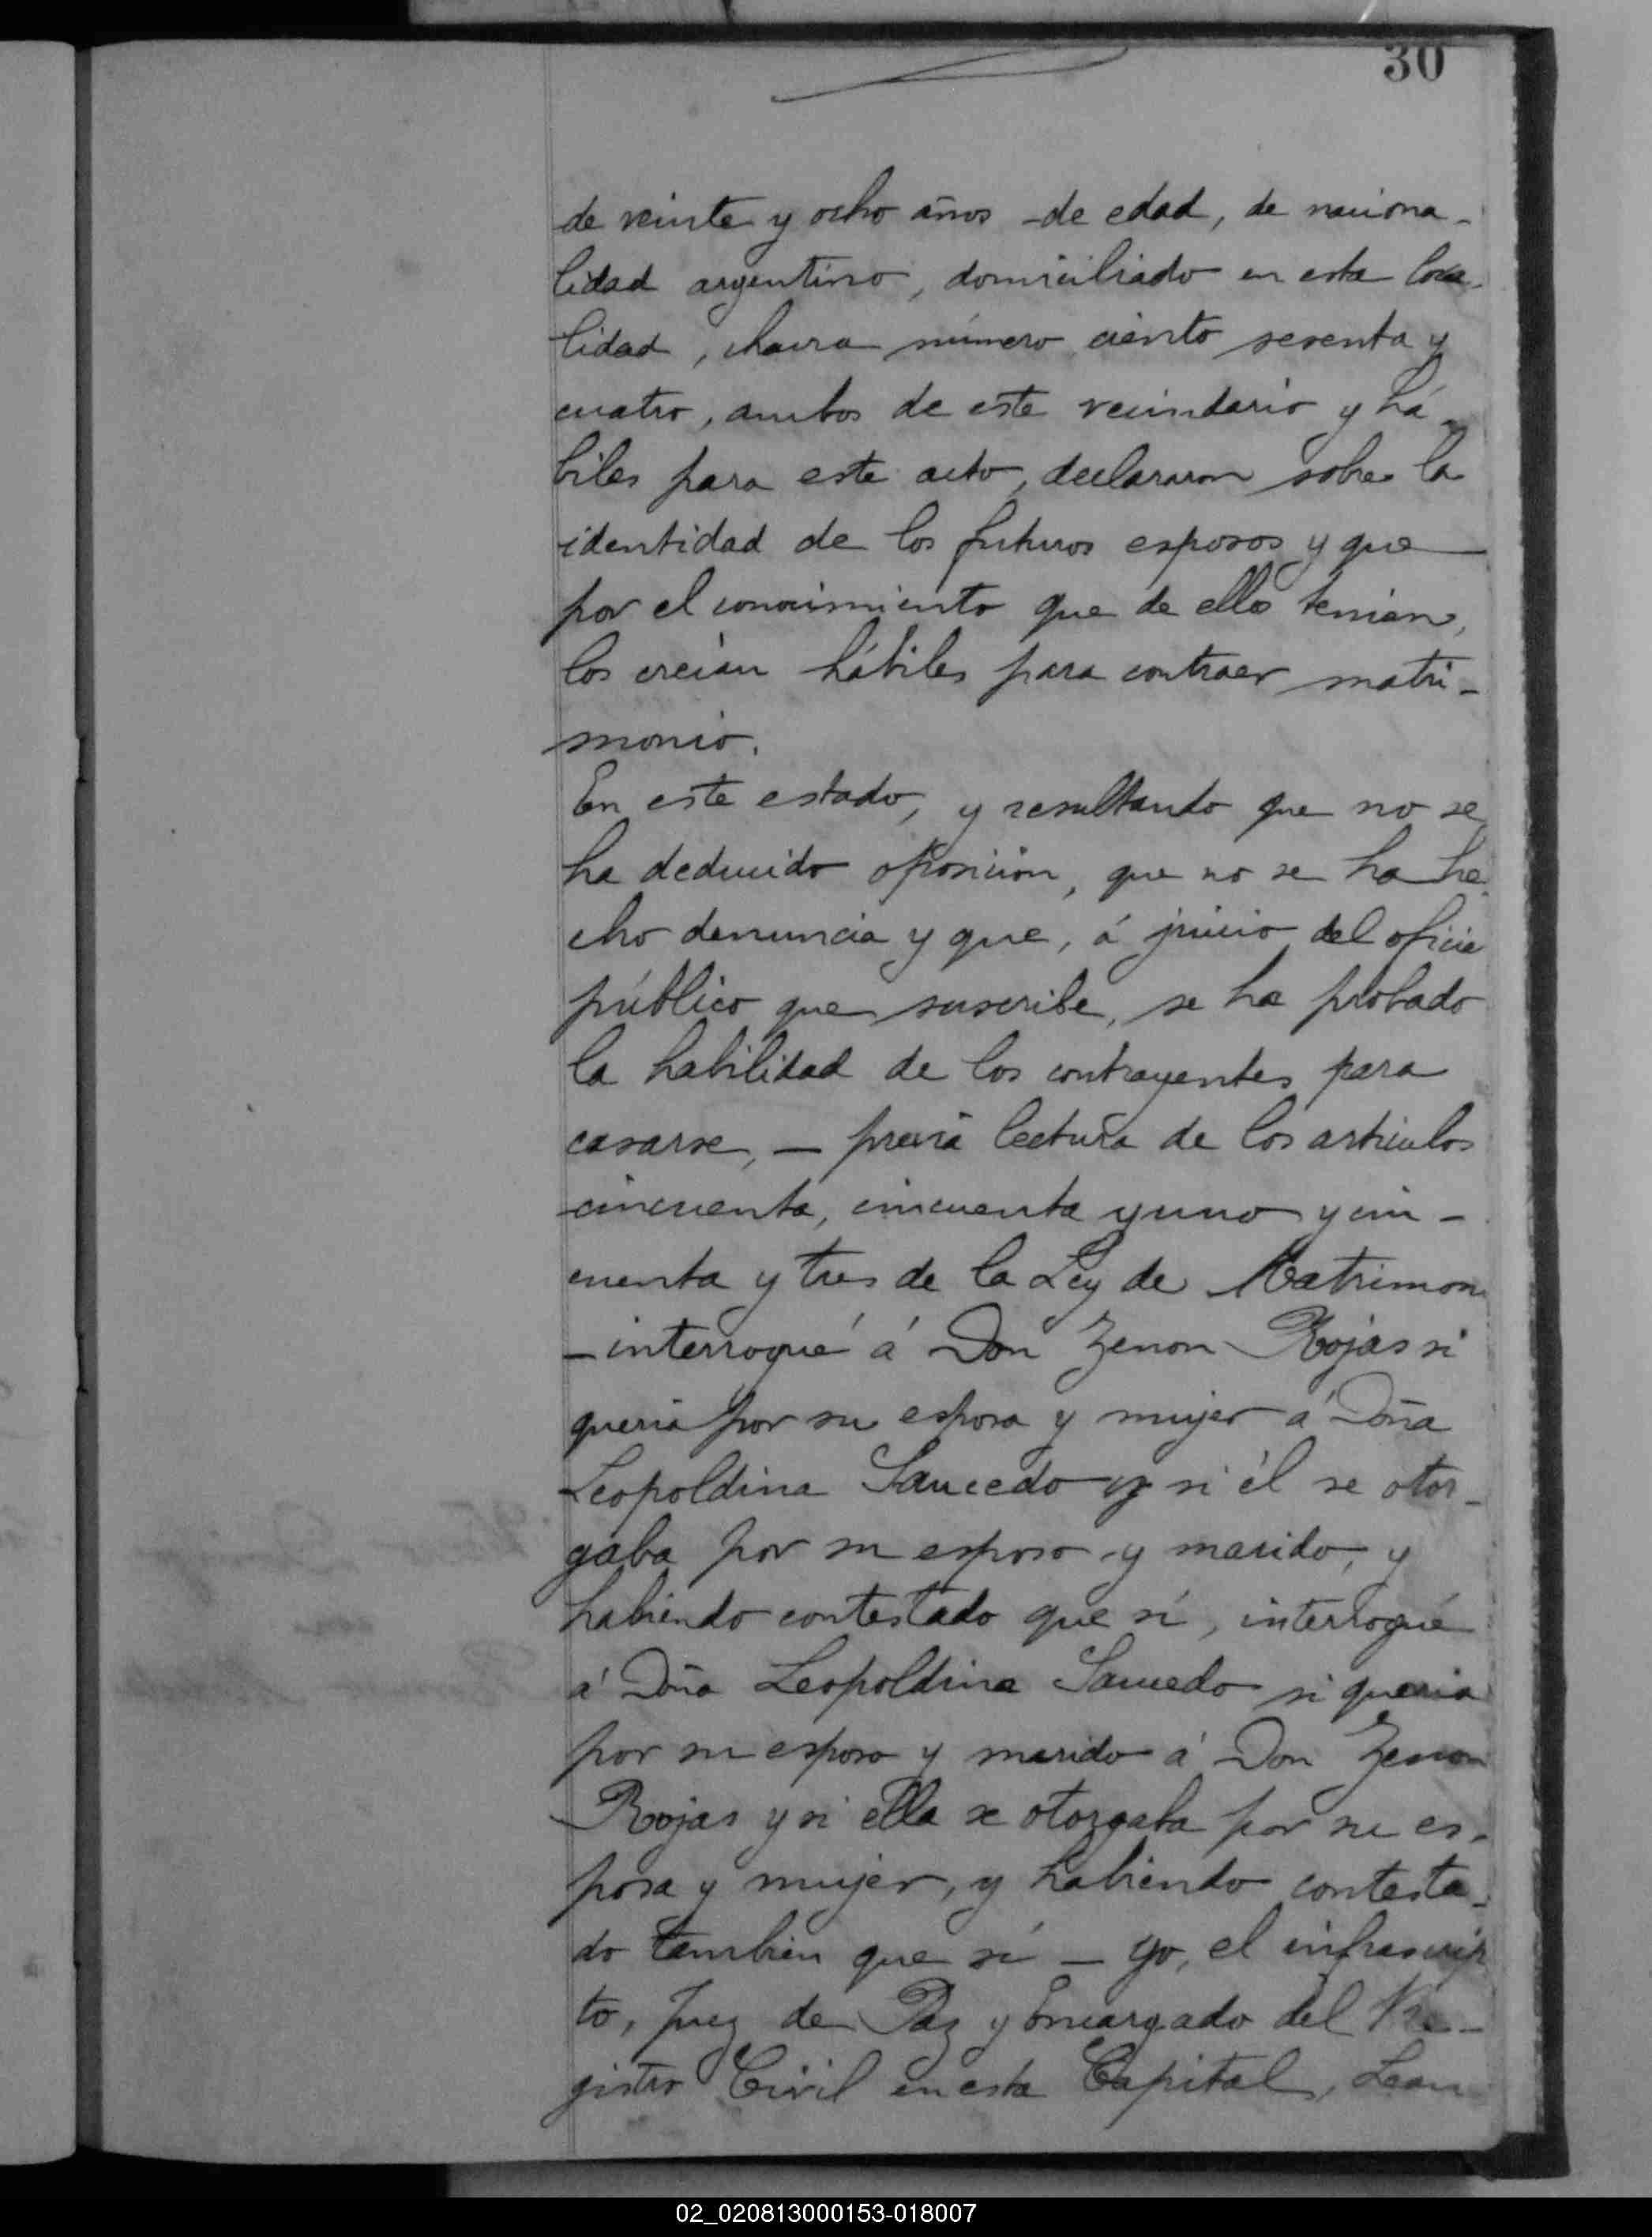 30
de veinte y ocho años de edad, de naciona-
lidad argentino, domiciliado en esta loca-
lidad, chacra número ciento sesenta y
cuatro, ambos de este vecindario y há-
biles para este acto, declararon sobre la
identidad de los futuros esposos y que
por el conocimiento que de ellos tenian,
los creían hábiles para contraer matri-
monio.
En este estado, y resultando que no se
ha deducido oposicion, que no se ha he-
cho denuncia y que, á juicio del oficial
público que suscribe, se ha probado
la habilidad de los contrayentes para
casarse, — previa lectura de los articulos
cincuenta, cincuenta y uno y cin-
cuenta y tres de la Ley de Matrimonio
— interrogué á Don Zenon Rojas si
queria por su esposa y mujer á Doña
Leopoldina Saucedo y si él se otor-
gaba por su esposo y marido, y
habiendo contestado que sí, interrogué
á Doña Leopoldina Saucedo si queria
por su esposo y marido á Don Zenon
Rojas y si ella se otorgaba por su es-
posa y mujer, y habiendo contesta-
do tambien que sí — yo, el infrascrip
to, Juez de Paz y Encargado del Re-
gistro Civil en esta Capital, Lean
02_020813000153-018007